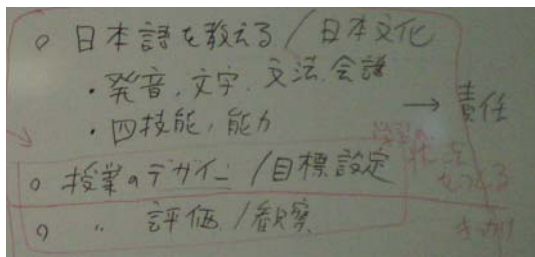 ○ 日本語を教える / 日本文化
・発音, 文字, 文法, 会話
・四技能, 能力
→ 責任
○ 授業のデザイン / 目標設定
○ 〃 評価 / 観察